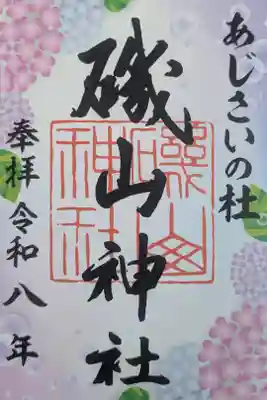 あじさいの杜
磯山神社
磯山
神社
奉拝 令和八年